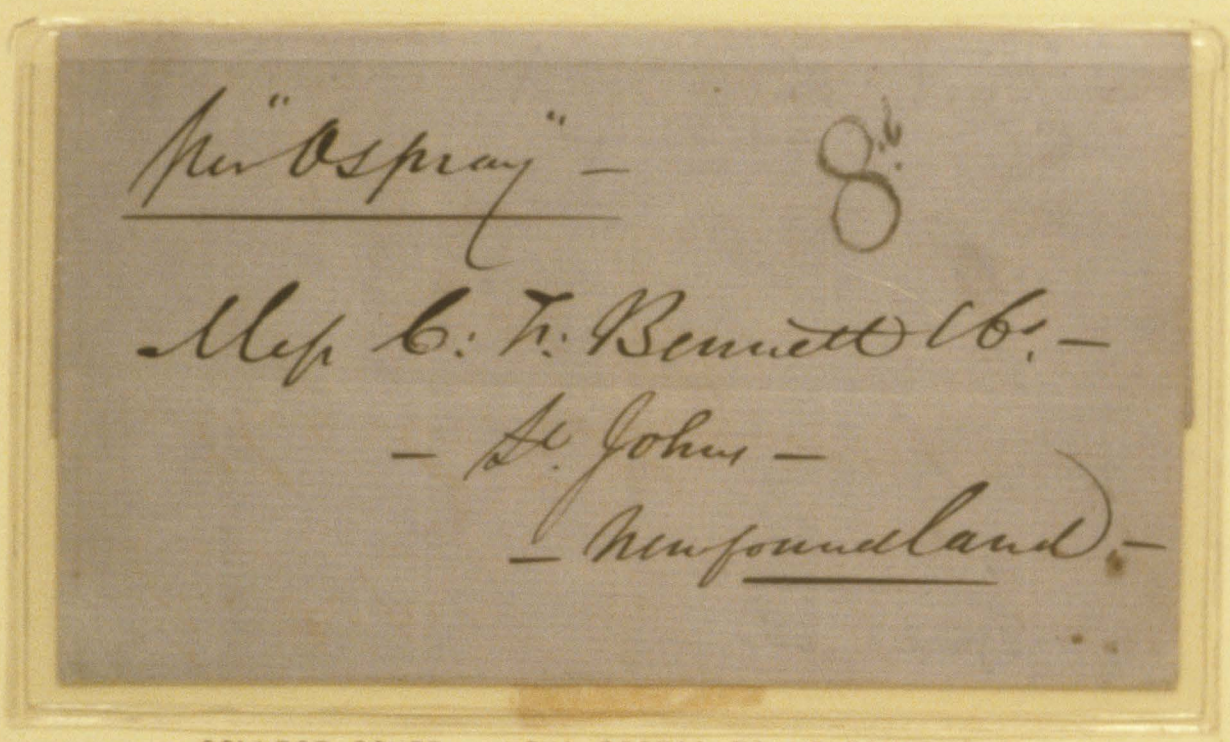 per "Ospray" —
8
Mess C: F: Bennett & Co. —
— St. Johns —
— Newfoundland. —